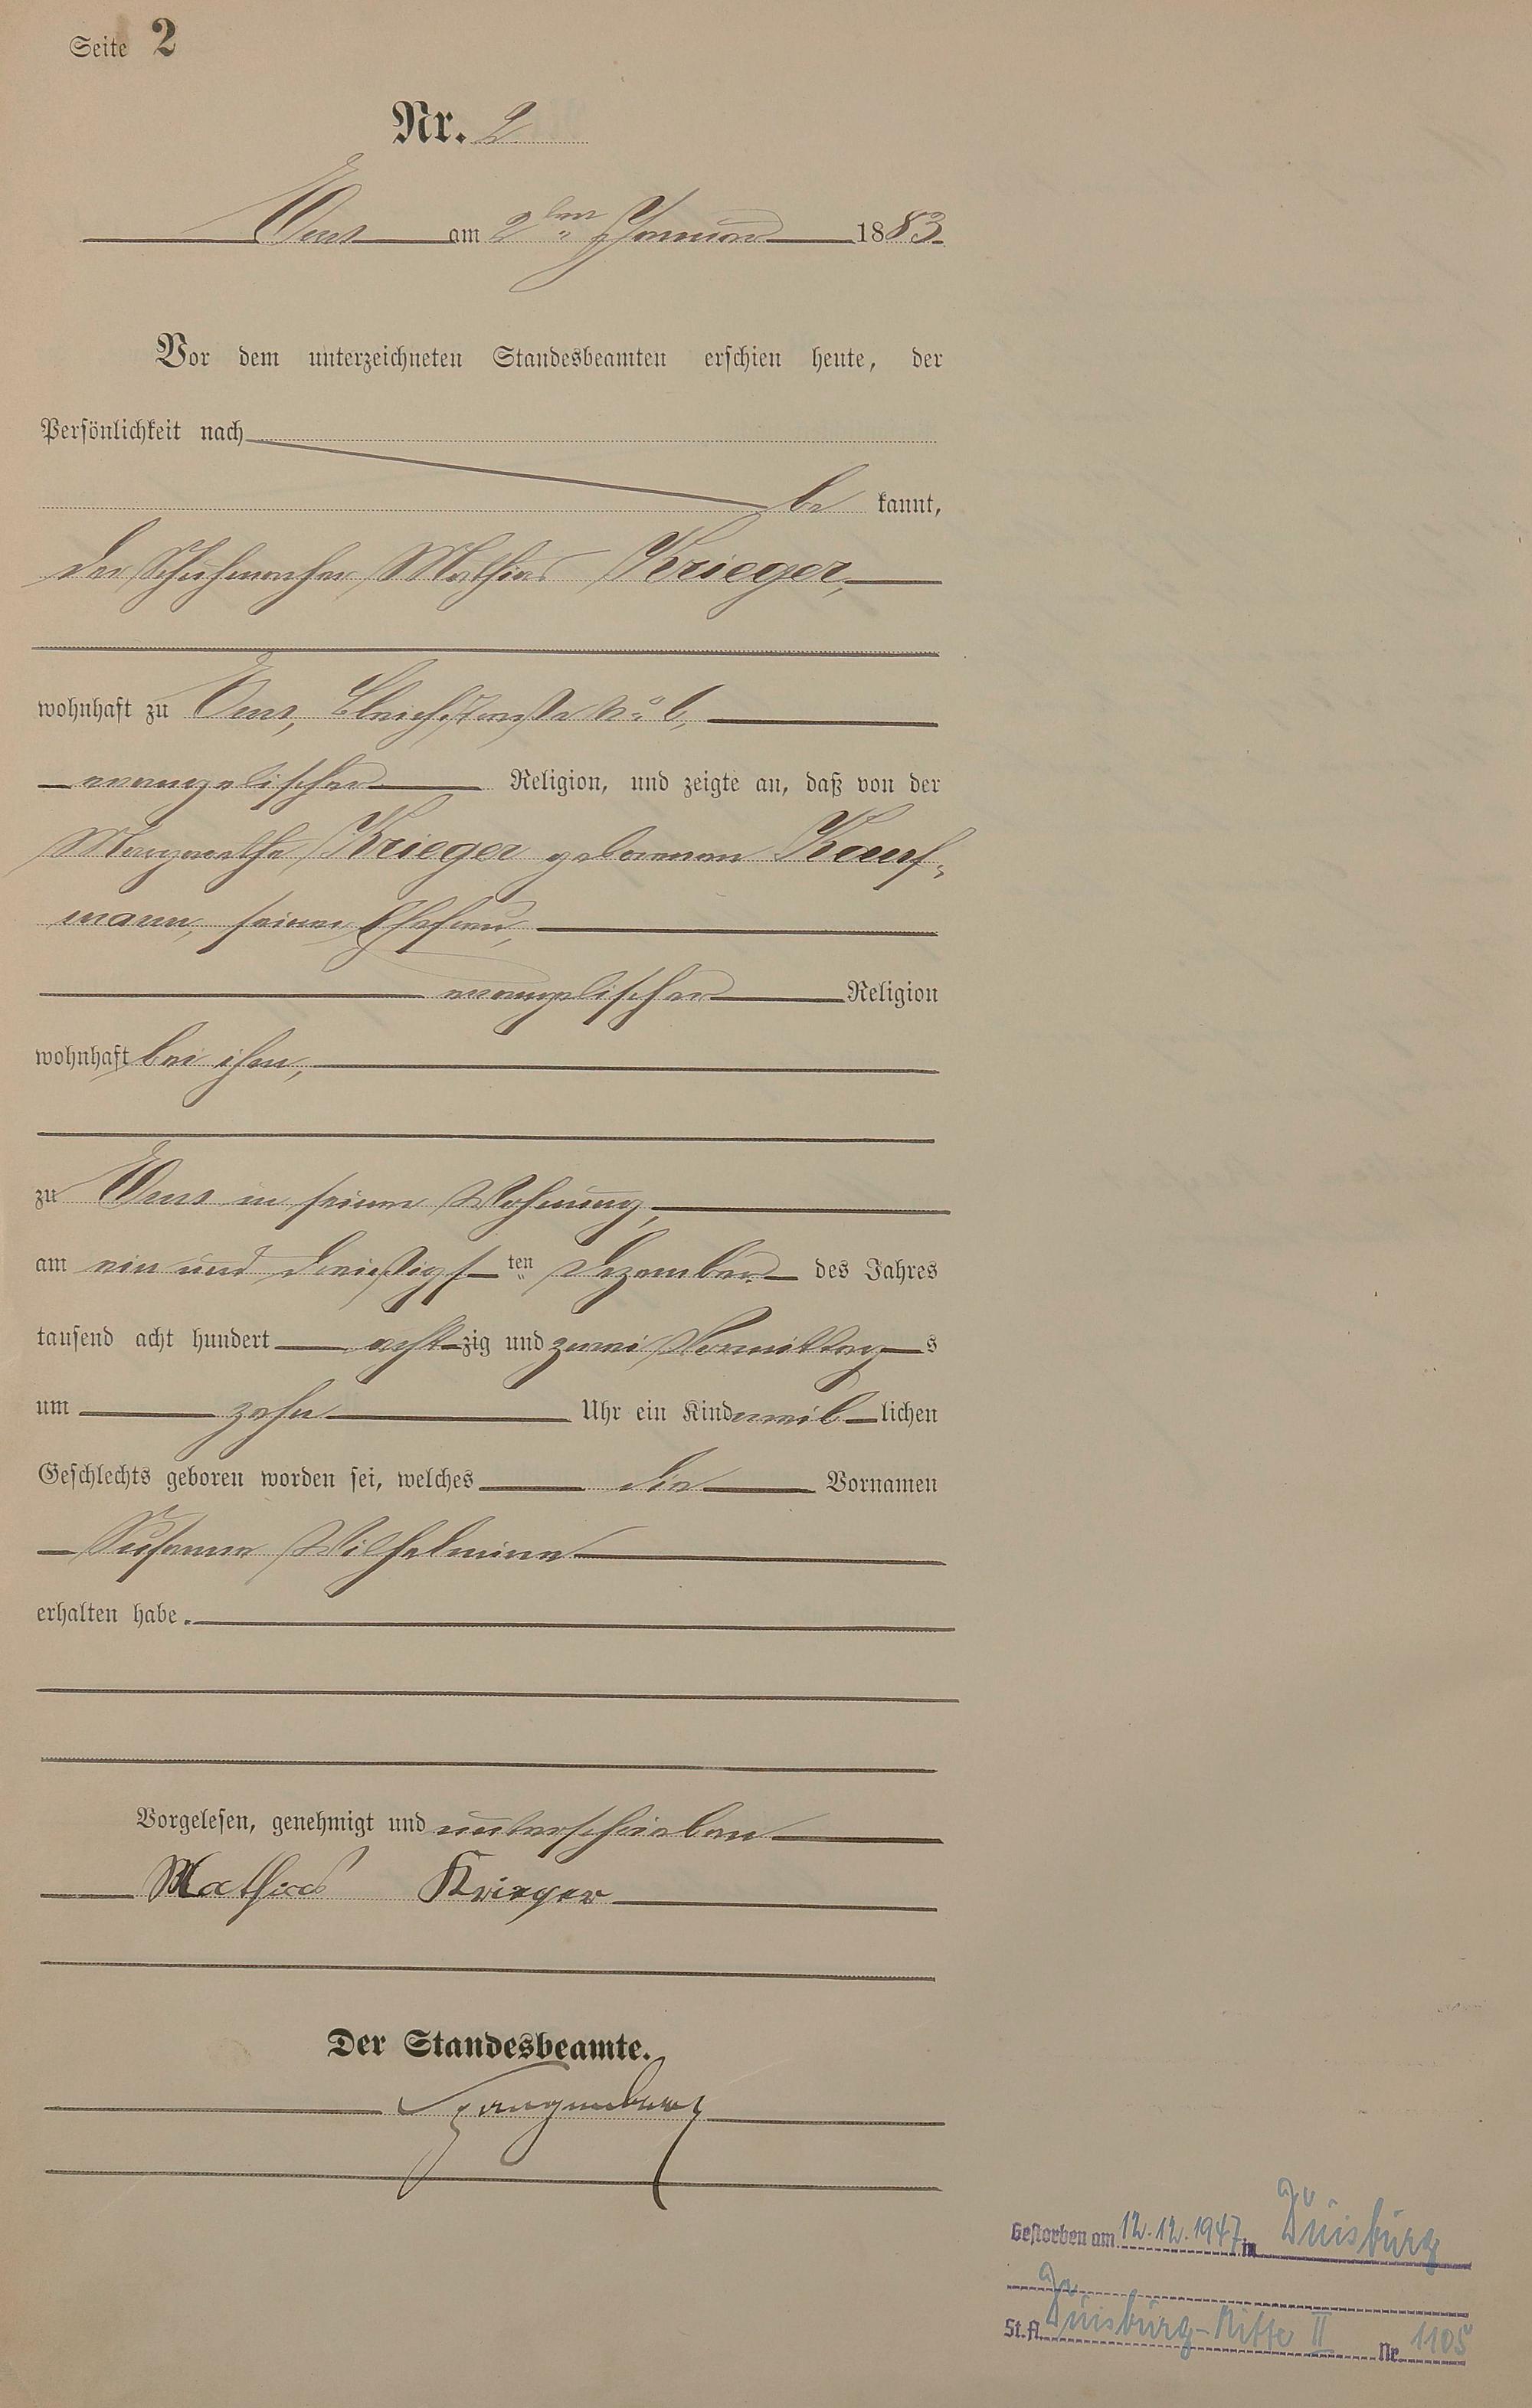 Seite 2
Nr. 2
Ems am 2ten Januar 1883
Vor dem unterzeichneten Standesbeamten erschien heute, der
Persönlichkeit nach
be kannt,
der Schuhmacher Mathias Krieger,
wohnhaft zu Ems, Bleichstraße No 6,
evangelischer Religion, und zeigte an, daß von der
Margarethe Krieger geborenen Kauf-
mann, seiner Ehefrau,
evangelischer Religion
wohnhaft bei ihm,
zu Ems in seiner Wohnung,
am ein und dreißigsten Dezember des Jahres
tausend acht hundert achtzig und zwei Vormittags
um zehn Uhr ein Kind weiblichen
Geschlechts geboren worden sei, welches die Vornamen
Susanna Wilhelmine
erhalten habe.
Vorgelesen, genehmigt und unterschrieben
Mathias Krieger
Der Standesbeamte.
Spangenberg
Gestorben am 12.12.1947 in Duisburg
St.A. Duisburg-Mitte II Nr. 1105